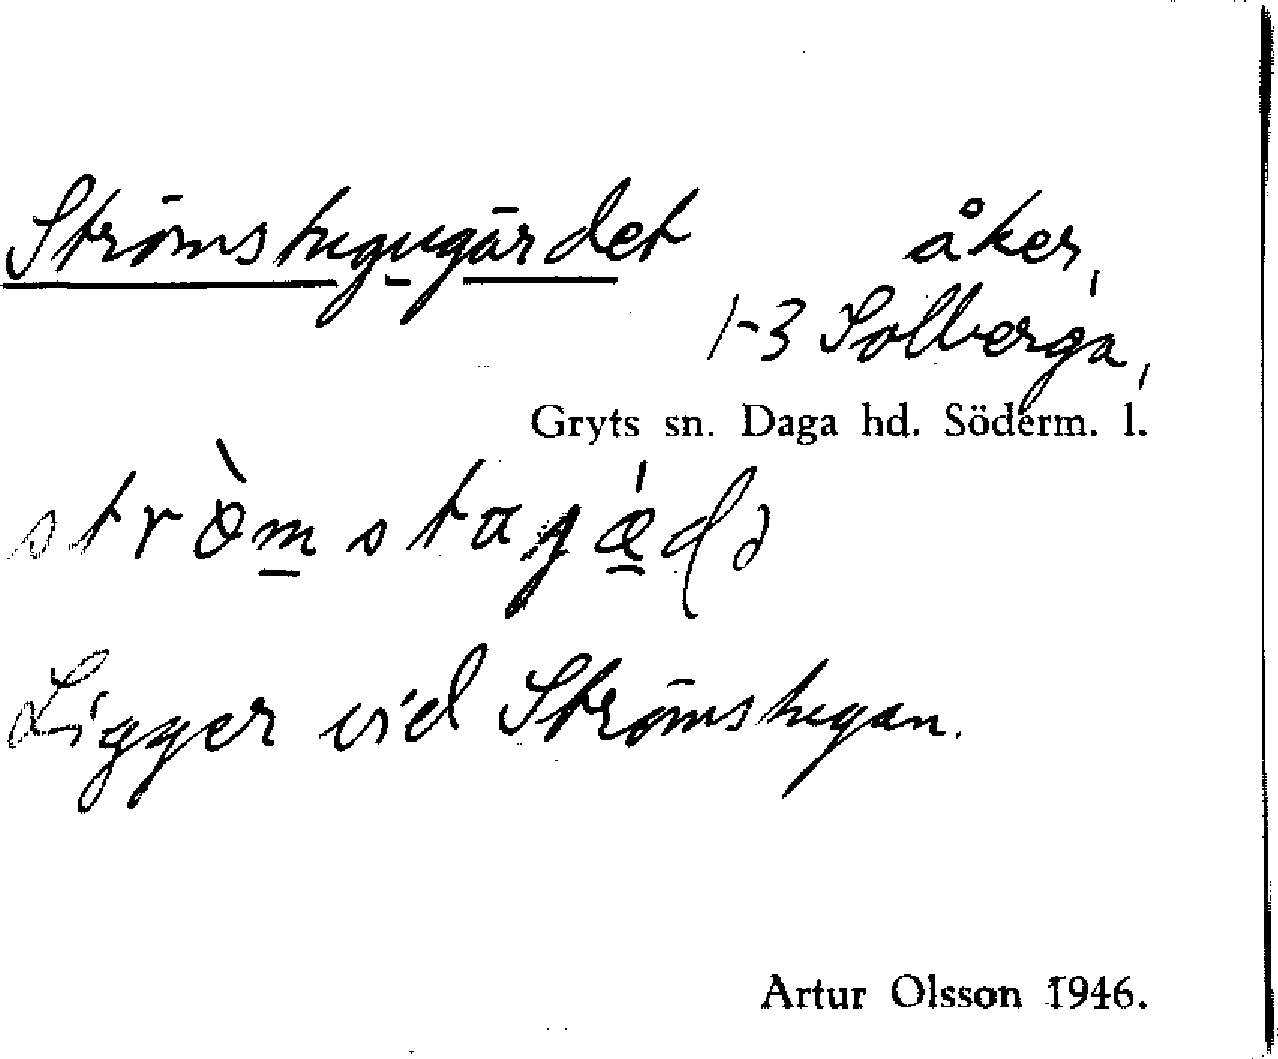 Strömstugugärdet åker,
1-3 Solberga,
Gryts sn. Daga hd. Söderm. l.
Ligger vid Strömstugan.
Artur Olsson 1946.